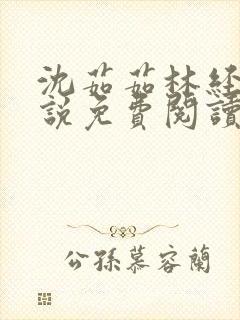 沈茹茹林经
說免費閱讀
公孫慕容蘭